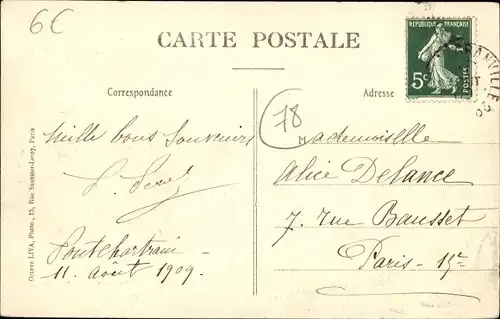 6C
CARTE POSTALE
REPUBLIQUE FRANÇAISE
POSTES
5c
Correspondance
Adresse
78
Mille bons souvenirs
Pontchartrain
11 Août 1909.
Mademoiselle
Alice Delance
7. Rue Bausset
Paris - 15e
Octave LIVA, Photo., 15, Rue Saussier-Leroy, Paris